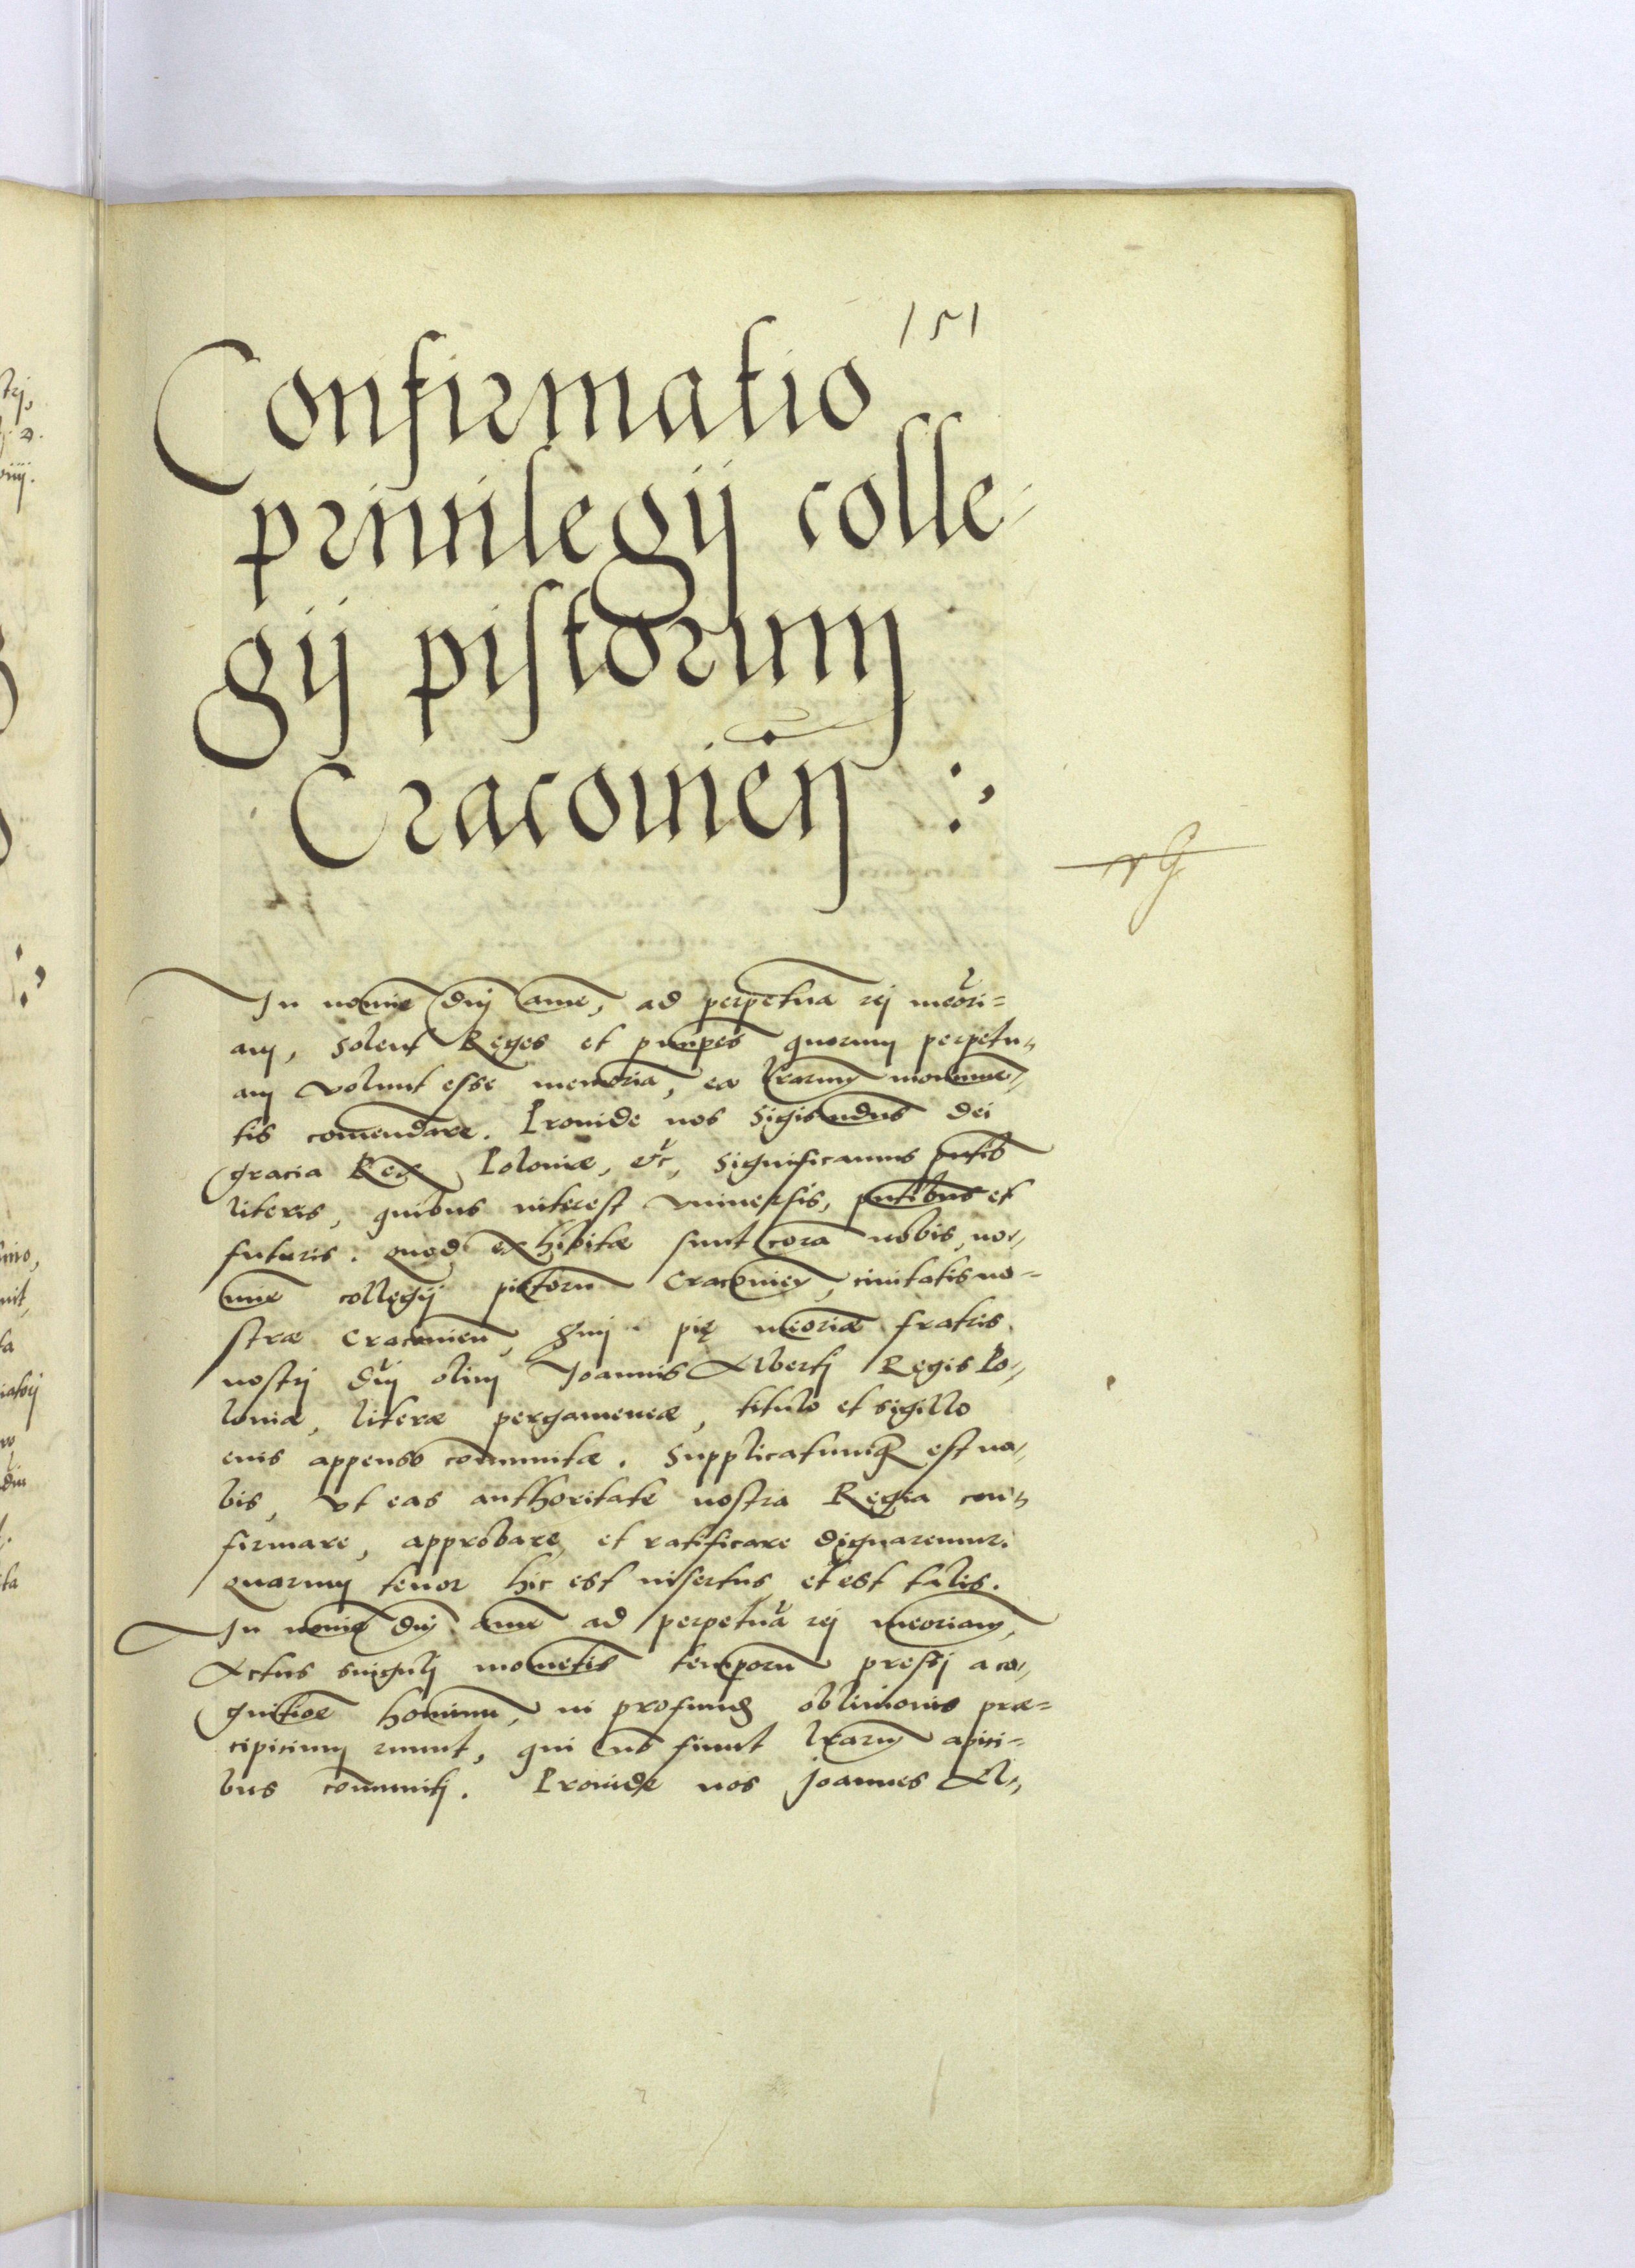 151
Confirmatio
priuilegij colle-
gij pistorum
Cracouien̄ :,
In noīe dnj ame, ad perpetuā rej meori=
am, solent Reges et pnnpes quorum perpetu-
am volunt esse memoriā, ea lrarum monume-
tis comendare. Prouide nos Sigismdus dei
gracia Rex Poloniæ, etc, significamus pntib
literis, quibus interest vniuersis, pntibus et
futuris. quod exhibitæ sunt corā nobis, no-
mīe collegij pistorū Cracouien, ciuitatis no=
stræ Cracouien, gmi pię meoriæ fratris
nostrj dnj olim Joannis Alberti Regis Po-
loniæ, literæ pergameneæ, titulo et sigillo
eius appenso comunitæ. Supplicatumq est no-
bis, vt eas authoritate nostra Regia con-
firmare, approbare et ratificare dignaremur.
quarum tenor hic est insertus et est talis.
In noīe dnj ame ad perpetuā rej meoriam,
Actus singulj mometis temporū pressj a co-
gnitioe hominū, in profundæ obliuionis præ=
cipicium ruunt, qui no fiunt lrarum apici=
bus comunitj. Prouide nos Joannes Al-